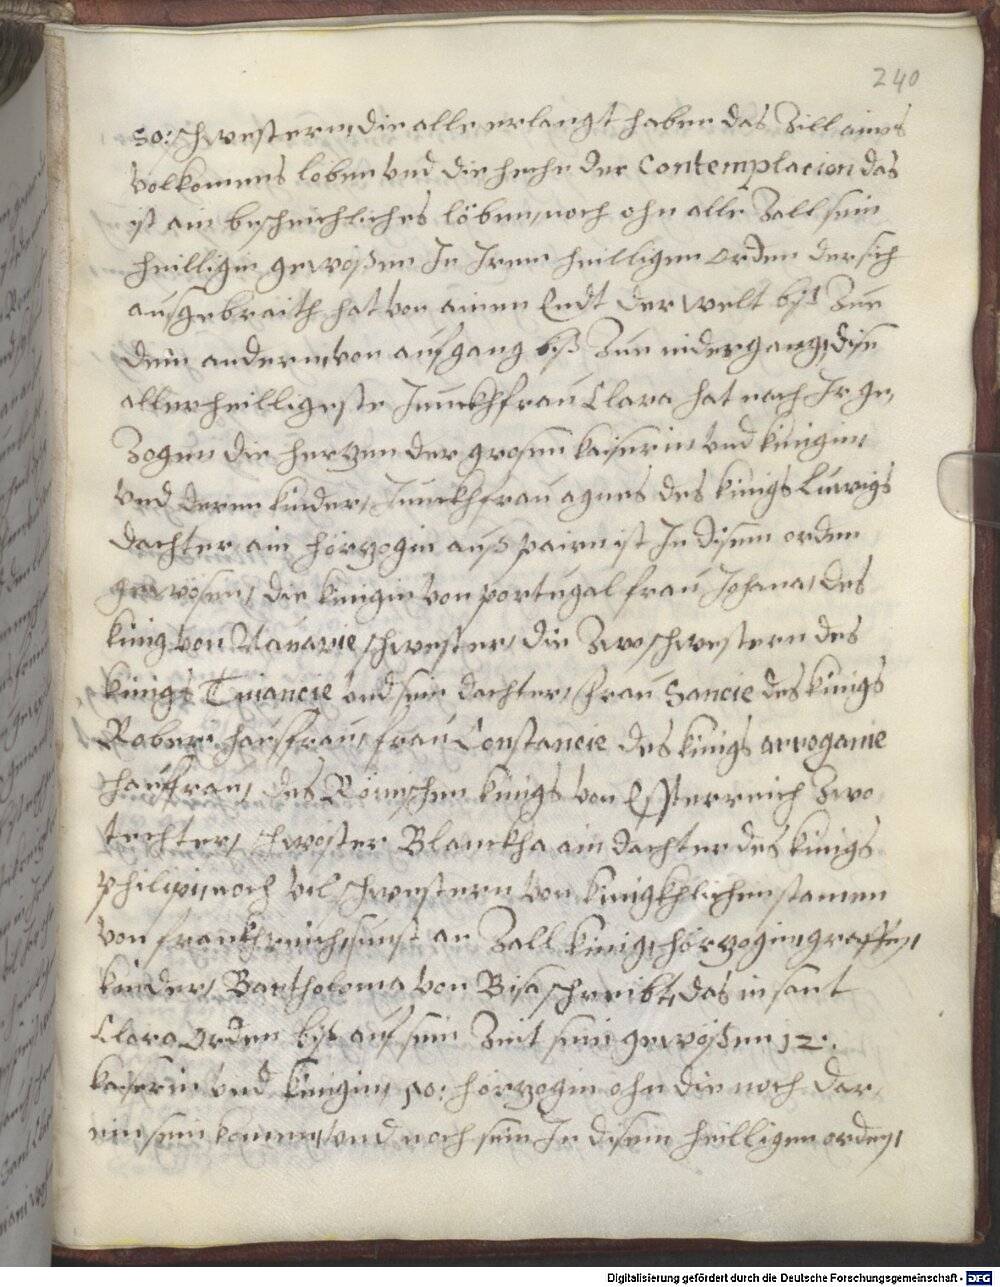 240
50: schwestern, die alle erlangt haben das Zill aines
volkomens löben und die heche der Contemplacion das
ist ain bescheichliches löben, noch ohn alle Zall sein
heilligen gewößen In Irem heilligen orden der sich
ausgebraith hat von ainem Endt der welt biß Zue
dem andern, von aufgang biß Zue nidergang, dise
allerheilligeste Junckhfrau Clara hat nach Ir ge,
Zogen die herzen der grosen kaiserin und künigin,
und deren kinder, Junckhfrau agnes des künigs Luwigs
dachter, ain hörzogin auß pairn ist In disem orden
gewösen, die künigin von portugal frau Johana, des
künig von Nauarie schwester, die Zwo schwestern des
künigs und sein dachter, frau Sancie des künigs
Roberi hausfrau, frau Constancie des künigs arroganie
hauffrau, des Römischen künigs von Essterreich Zwo
techter, schwöster Blanckha ain dachter des künigs
philipi, noch vil schwestern von künigkhlichen stamen
von franckhreich, sunst an Zall künig, hörzogin, graffen,
kinder, Bartholoma von Bisa schreibt, das in sant
Clara orden biß auf sein Zeit sein gewößen 12:
kaiserin und künigin, 50: hörzogin ohn die noch dar
ein sein komen, und noch sein In disem heilligen orden,
Digitalisierung gefördert durch die Deutsche Forschungsgemeinschaft - DFG